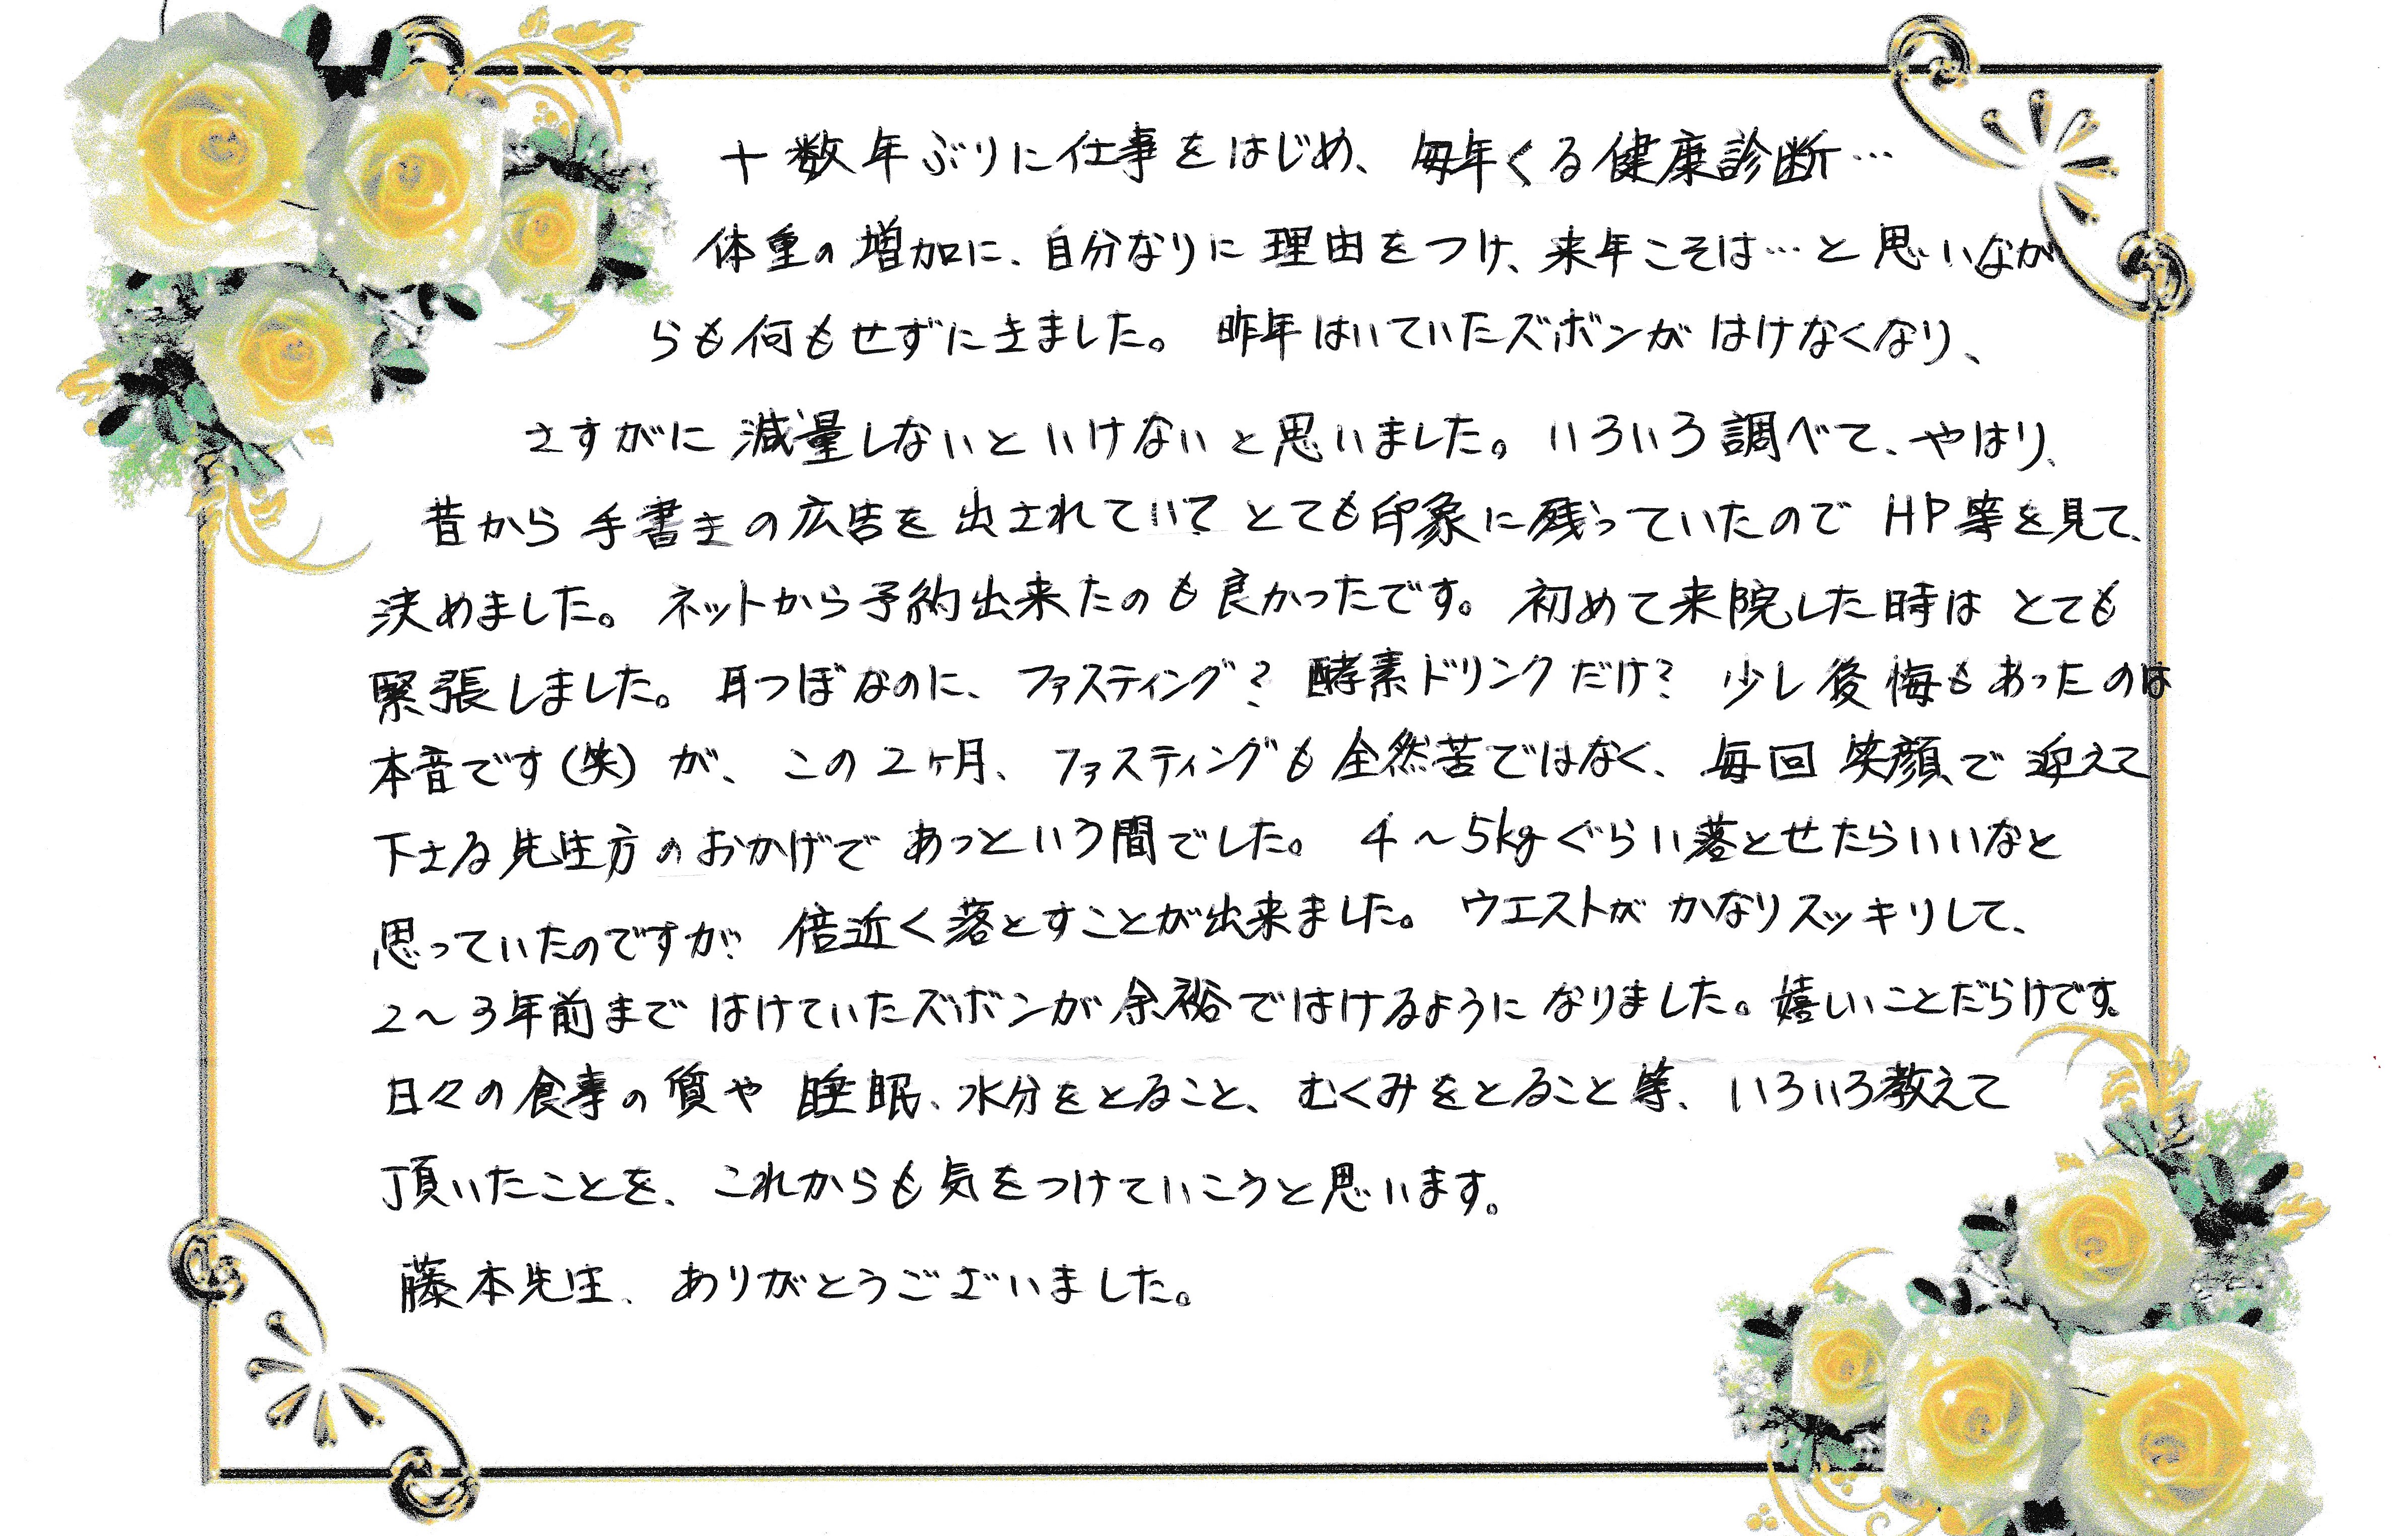 十数年ぶりに仕事をはじめ、毎年くる健康診断…
体重の増加に、自分なりに理由をつけ、来年こそは…と思いなが
らも何もせずにきました。昨年はいていたズボンがはけなくなり、
さすがに減量しないといけないと思いました。いろいろ調べて、やはり、
昔から手書きの広告を出されていてとても印象に残っていたのでHP等を見て、
決めました。ネットから予約出来たのも良かったです。初めて来院した時はとても
緊張しました。耳つぼなのに、ファスティング?酵素ドリンクだけ?少し後悔もあったのは
本音です(笑)が、この2ヶ月、ファスティングも全然苦ではなく、毎回笑顔で迎えて
下さる先生方のおかげであっという間でした。4~5kgぐらい落とせたらいいなと
思っていたのですが倍近く落とすことが出来ました。ウエストがかなりスッキリして、
2~3年前まではけていたズボンが余裕ではけるようになりました。嬉しいことだらけです。
日々の食事の質や睡眠、水分をとること、むくみをとること等、いろいろ教えて
頂いたことを、これからも気をつけていこうと思います。
藤本先生、ありがとうございました。